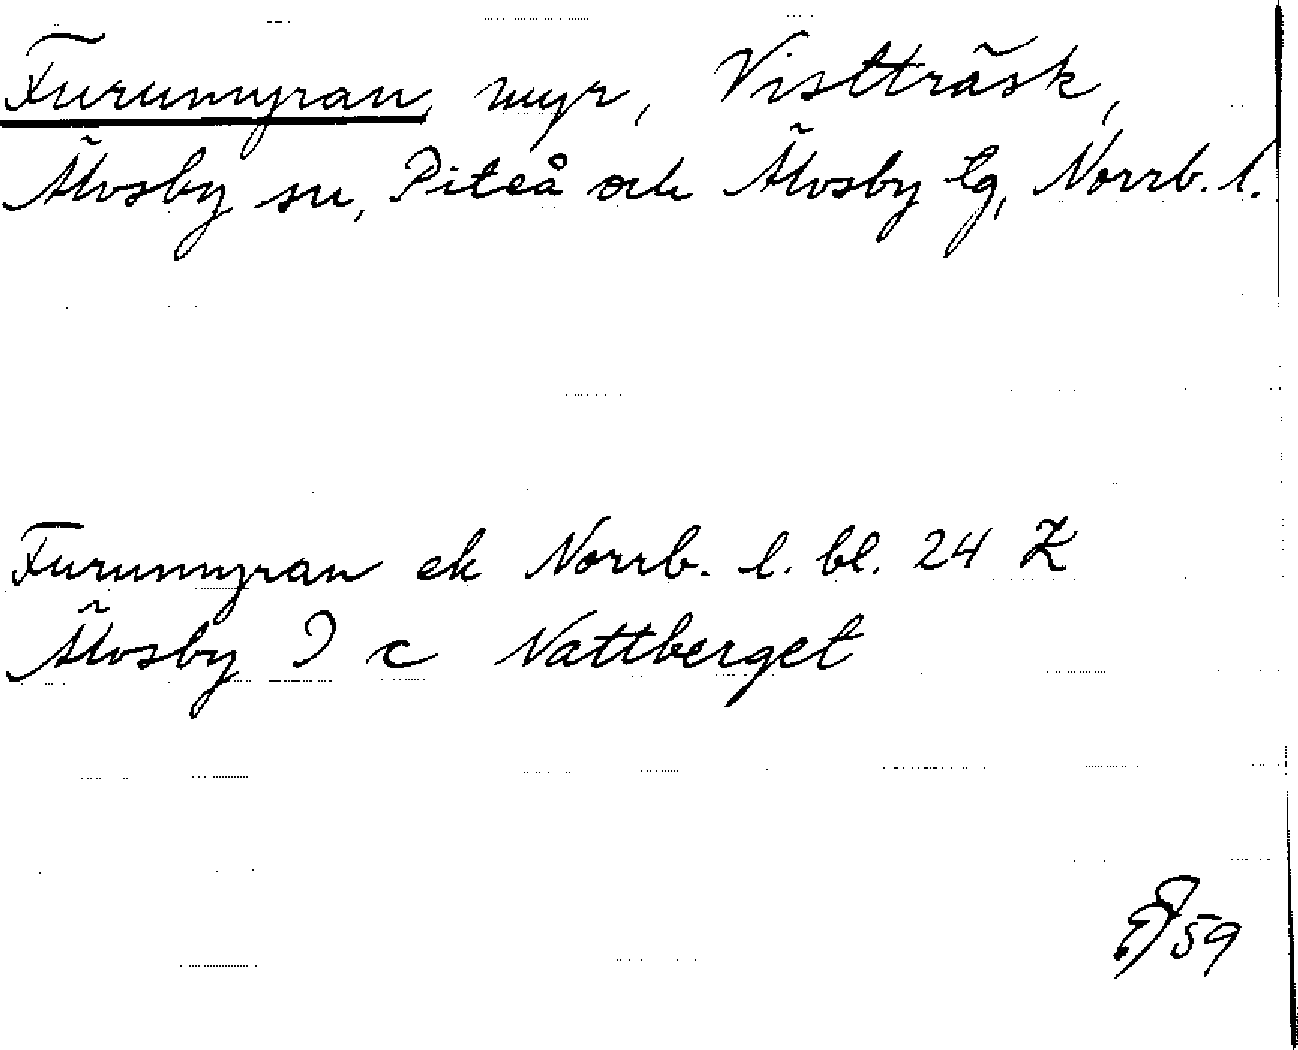 Furumyran, myr, Vistträsk,
Älvsby sn, Piteå och Älvsby tg, Norrb. l.
Furumyran ek Norrb. l. bl. 24 Z
Älvsby I c Nattberget
59